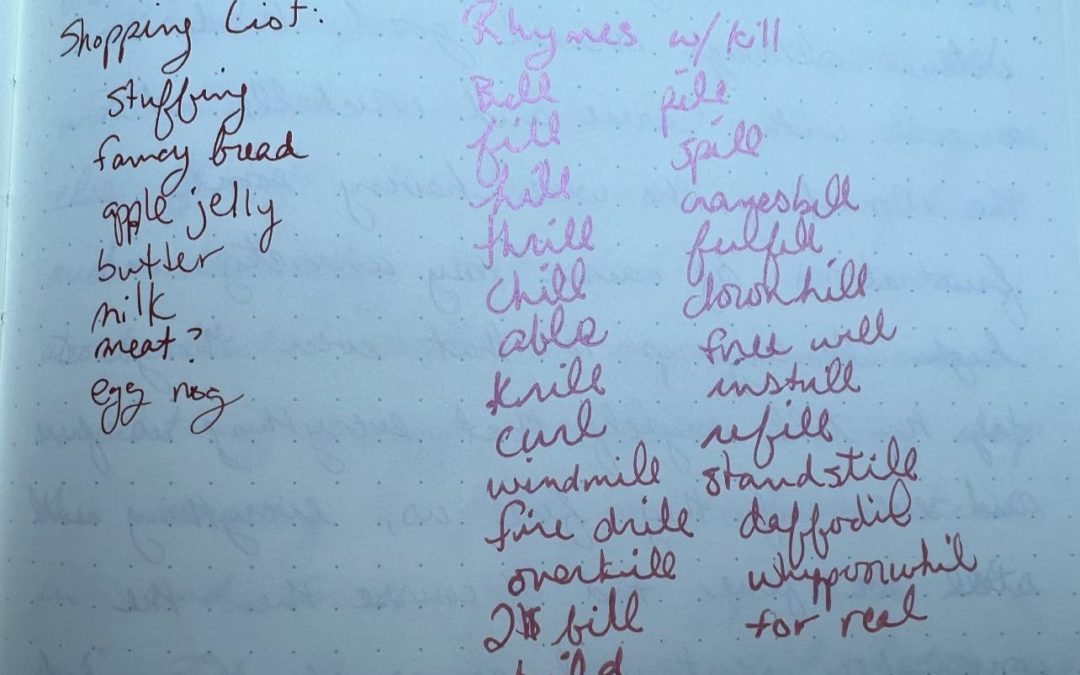 Shopping List:
stuffing
fancy bread
apple jelly
butter
milk
meat?
egg nog
Rhymes w/ kill
Bill
fill
hill
thrill
chill
able
krill
curl
windmill
fire drill
overkill
2$ bill
pill
spill
cranesbill
fulfill
downhill
free will
instill
refill
standstill
daffodil
whipporwhil
for real